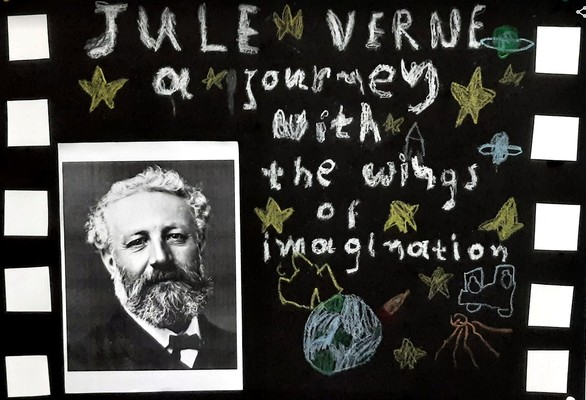 JULE VERNE
a journey
with
the wings
of
imagination